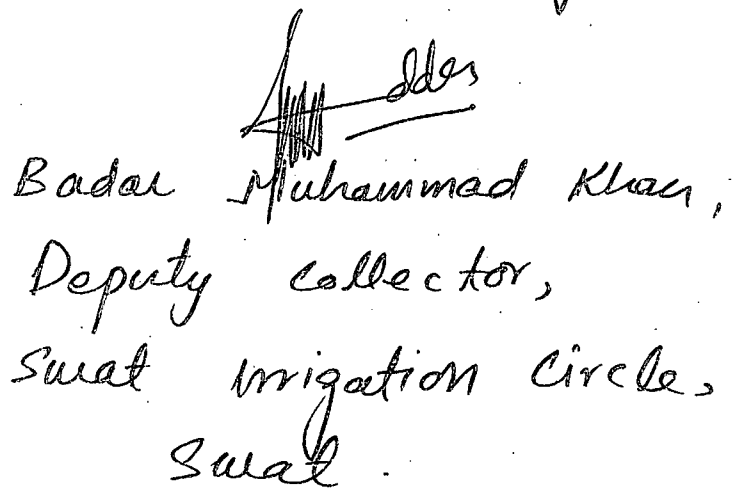 Badar Muhammad Khan,
Deputy Collector,
Swat Irrigation Circle,
Swat.